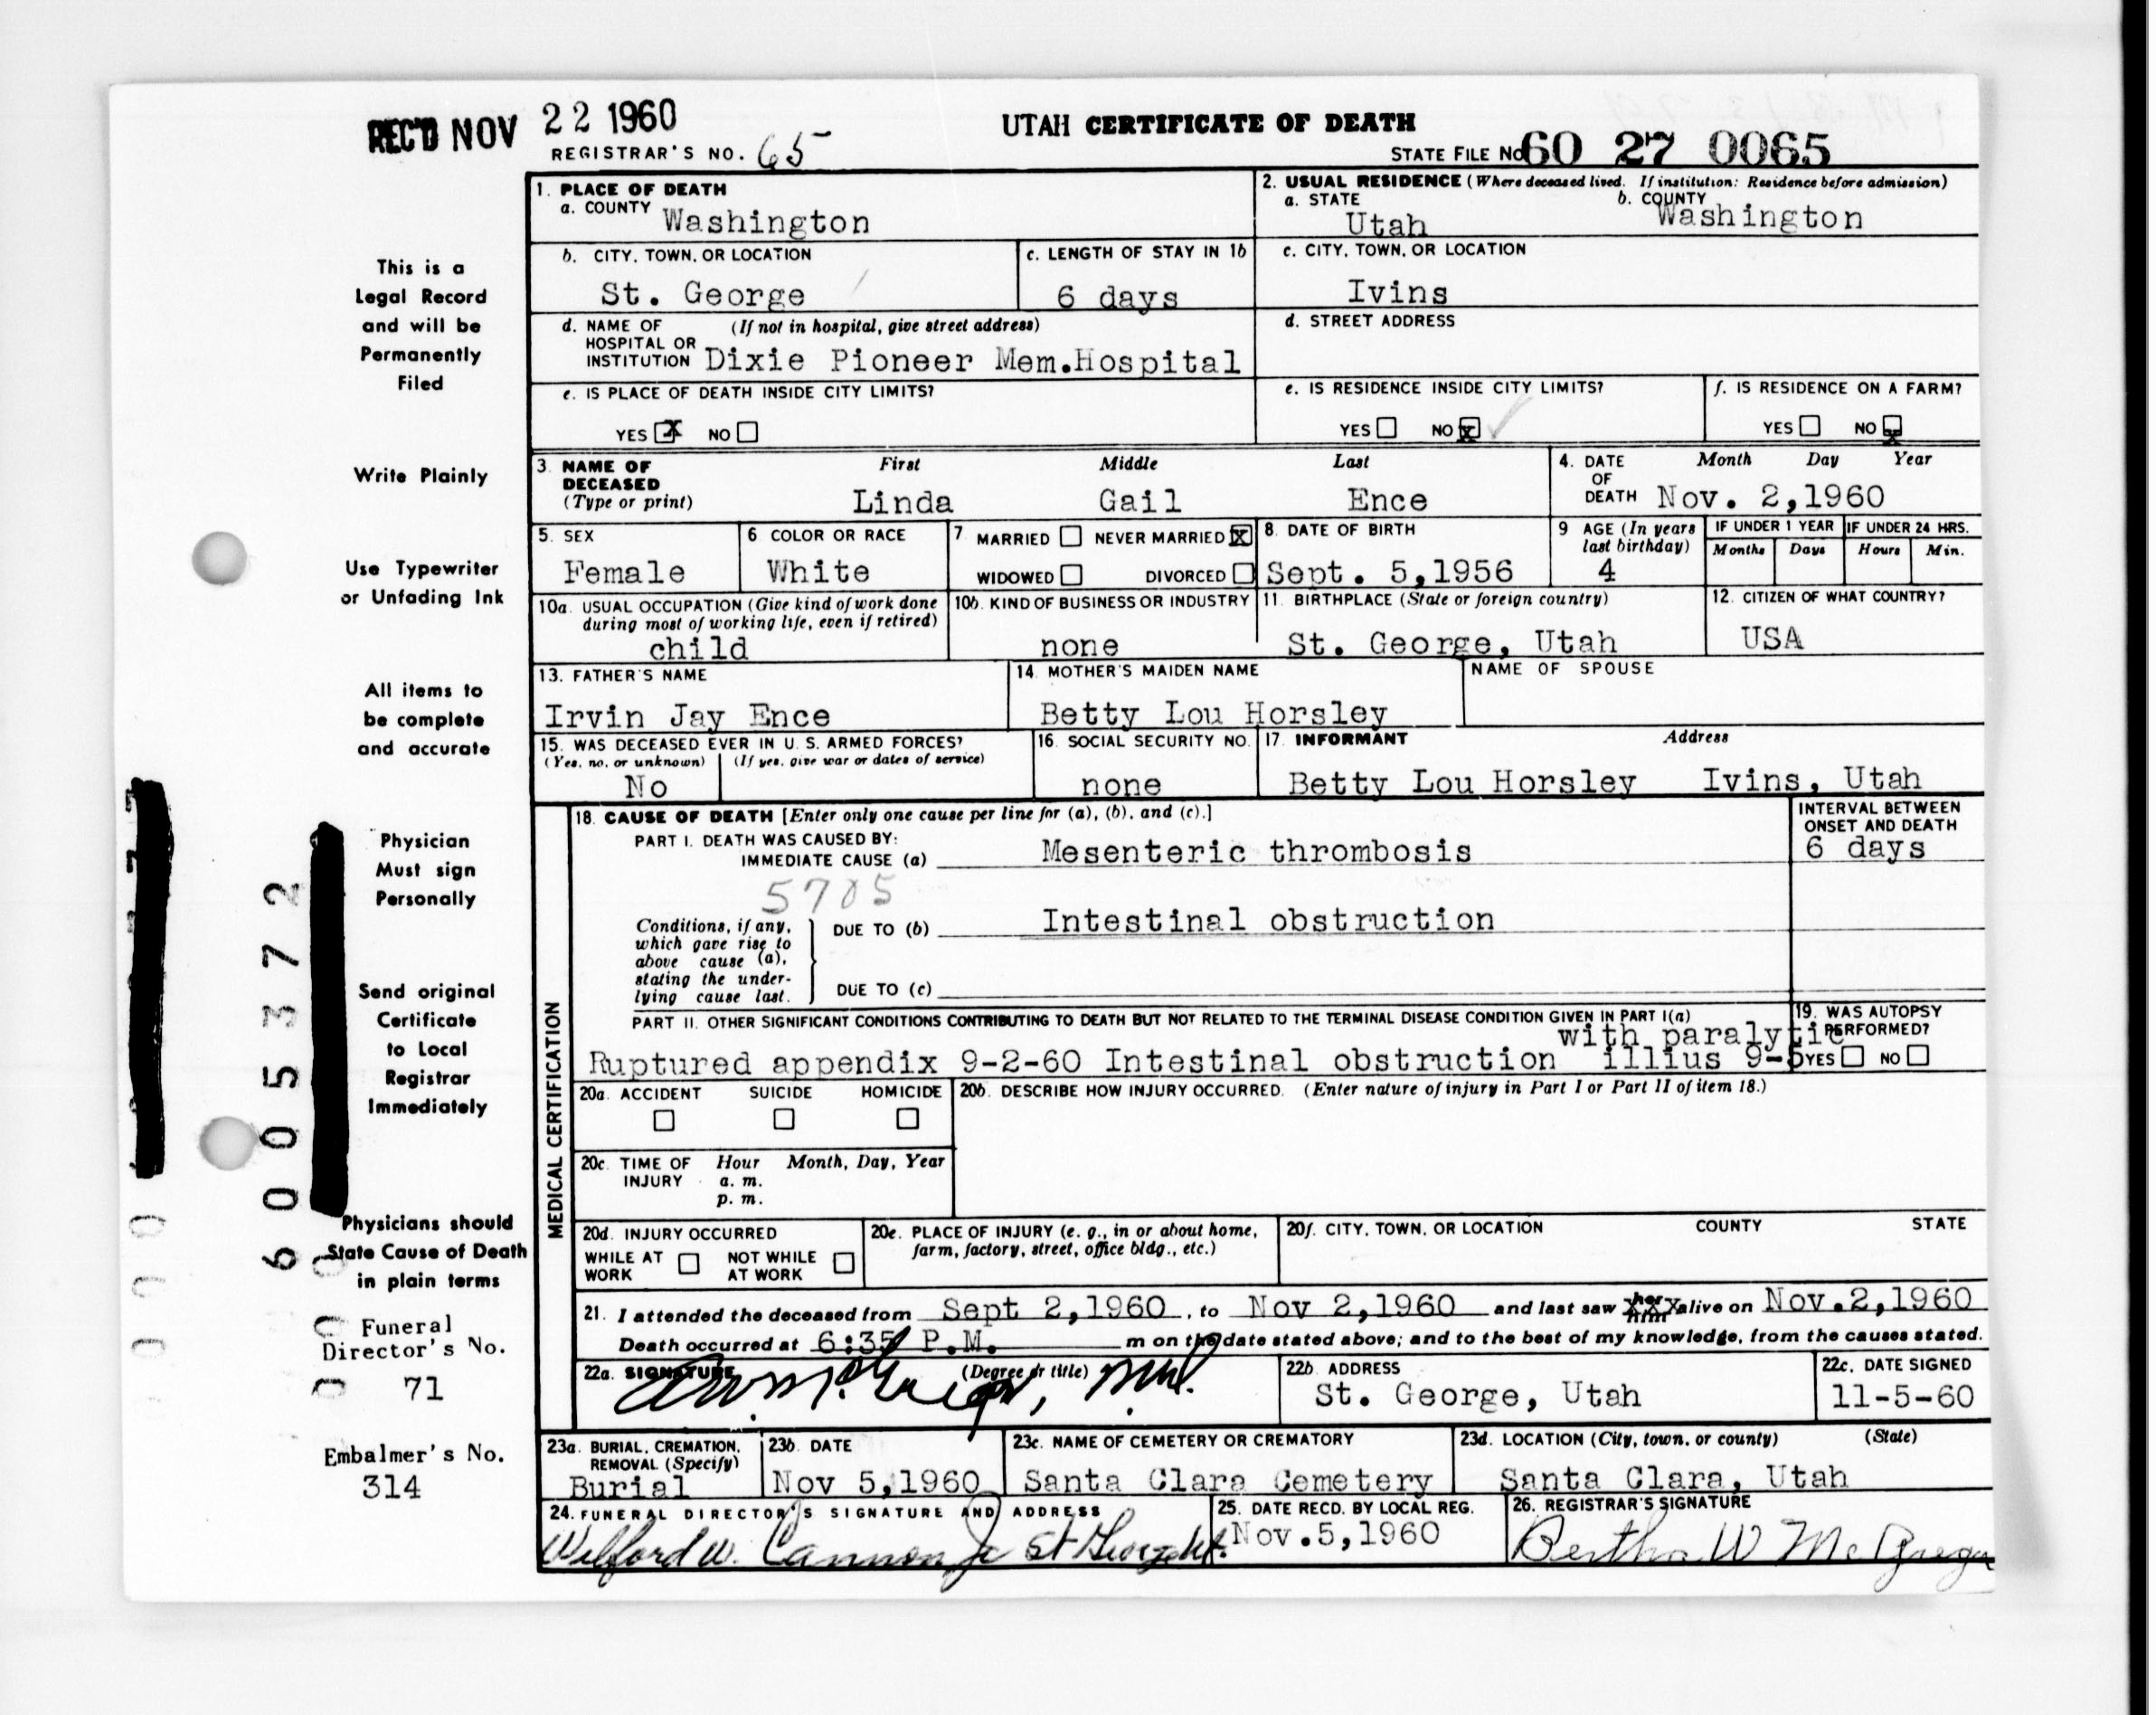 REC'D NOV 22 1960
UTAH CERTIFICATE OF DEATH
REGISTRAR'S NO. 65
STATE FILE NO 60 27 0065
1. PLACE OF DEATH
a. COUNTY Washington
2. USUAL RESIDENCE (Where deceased lived. If institution: Residence before admission)
a. STATE Utah b. COUNTY Washington
b. CITY, TOWN, OR LOCATION St. George
c. LENGTH OF STAY IN 1b 6 days
c. CITY, TOWN, OR LOCATION Ivins
d. NAME OF HOSPITAL OR INSTITUTION (If not in hospital, give street address) Dixie Pioneer Mem.Hospital
d. STREET ADDRESS
e. IS PLACE OF DEATH INSIDE CITY LIMITS?
YES X NO
e. IS RESIDENCE INSIDE CITY LIMITS?
YES NO X
f. IS RESIDENCE ON A FARM?
YES NO X
3. NAME OF DECEASED (Type or print)
First Middle Last
Linda Gail Ence
4. DATE OF DEATH Month Day Year
Nov. 2,1960
5. SEX Female
6 COLOR OR RACE White
7 MARRIED NEVER MARRIED X
WIDOWED DIVORCED
8. DATE OF BIRTH Sept. 5,1956
9 AGE (In years last birthday) 4
IF UNDER 1 YEAR Months Days
IF UNDER 24 HRS. Hours Min.
10a. USUAL OCCUPATION (Give kind of work done during most of working life, even if retired) child
10b. KIND OF BUSINESS OR INDUSTRY none
11. BIRTHPLACE (State or foreign country) St. George, Utah
12. CITIZEN OF WHAT COUNTRY? USA
13. FATHER'S NAME Irvin Jay Ence
14. MOTHER'S MAIDEN NAME Betty Lou Horsley
NAME OF SPOUSE
15. WAS DECEASED EVER IN U. S. ARMED FORCES?
(Yes, no, or unknown) (If yes, give war or dates of service)
No
16. SOCIAL SECURITY NO. none
17. INFORMANT Address
Betty Lou Horsley Ivins, Utah
MEDICAL CERTIFICATION
18. CAUSE OF DEATH [Enter only one cause per line for (a), (b), and (c).]
INTERVAL BETWEEN ONSET AND DEATH
PART I. DEATH WAS CAUSED BY:
IMMEDIATE CAUSE (a) Mesenteric thrombosis 6 days
5705
Conditions, if any, which gave rise to above cause (a), stating the underlying cause last.
DUE TO (b) Intestinal obstruction
DUE TO (c)
PART II. OTHER SIGNIFICANT CONDITIONS CONTRIBUTING TO DEATH BUT NOT RELATED TO THE TERMINAL DISEASE CONDITION GIVEN IN PART I(a)
with paralytic
Ruptured appendix 9-2-60 Intestinal obstruction illius 9-5
19. WAS AUTOPSY PERFORMED?
YES NO
20a. ACCIDENT SUICIDE HOMICIDE
20b. DESCRIBE HOW INJURY OCCURRED. (Enter nature of injury in Part I or Part II of item 18.)
20c. TIME OF INJURY Hour Month, Day, Year
a. m.
p. m.
20d. INJURY OCCURRED
WHILE AT WORK NOT WHILE AT WORK
20e. PLACE OF INJURY (e. g., in or about home, farm, factory, street, office bldg., etc.)
20f. CITY, TOWN, OR LOCATION COUNTY STATE
21. I attended the deceased from Sept 2,1960, to Nov 2,1960 and last saw her him alive on Nov.2,1960
Death occurred at 6:35 P.M. m on the date stated above; and to the best of my knowledge, from the causes stated.
22a. SIGNATURE (Degree or title)
McGregor, M.D.
22b. ADDRESS St. George, Utah
22c. DATE SIGNED 11-5-60
23a. BURIAL, CREMATION, REMOVAL (Specify) Burial
23b. DATE Nov 5,1960
23c. NAME OF CEMETERY OR CREMATORY Santa Clara Cemetery
23d. LOCATION (City, town, or county) (State)
Santa Clara, Utah
24. FUNERAL DIRECTOR'S SIGNATURE AND ADDRESS
Wilford W. Cannon Jr St George Ut.
25. DATE RECD. BY LOCAL REG. Nov.5,1960
26. REGISTRAR'S SIGNATURE
Bertha W McGregor
This is a
Legal Record
and will be
Permanently
Filed
Write Plainly
Use Typewriter
or Unfading Ink
All items to
be complete
and accurate
Physician
Must sign
Personally
Send original
Certificate
to Local
Registrar
Immediately
Physicians should
State Cause of Death
in plain terms
Funeral
Director's No.
71
Embalmer's No.
314
6005372